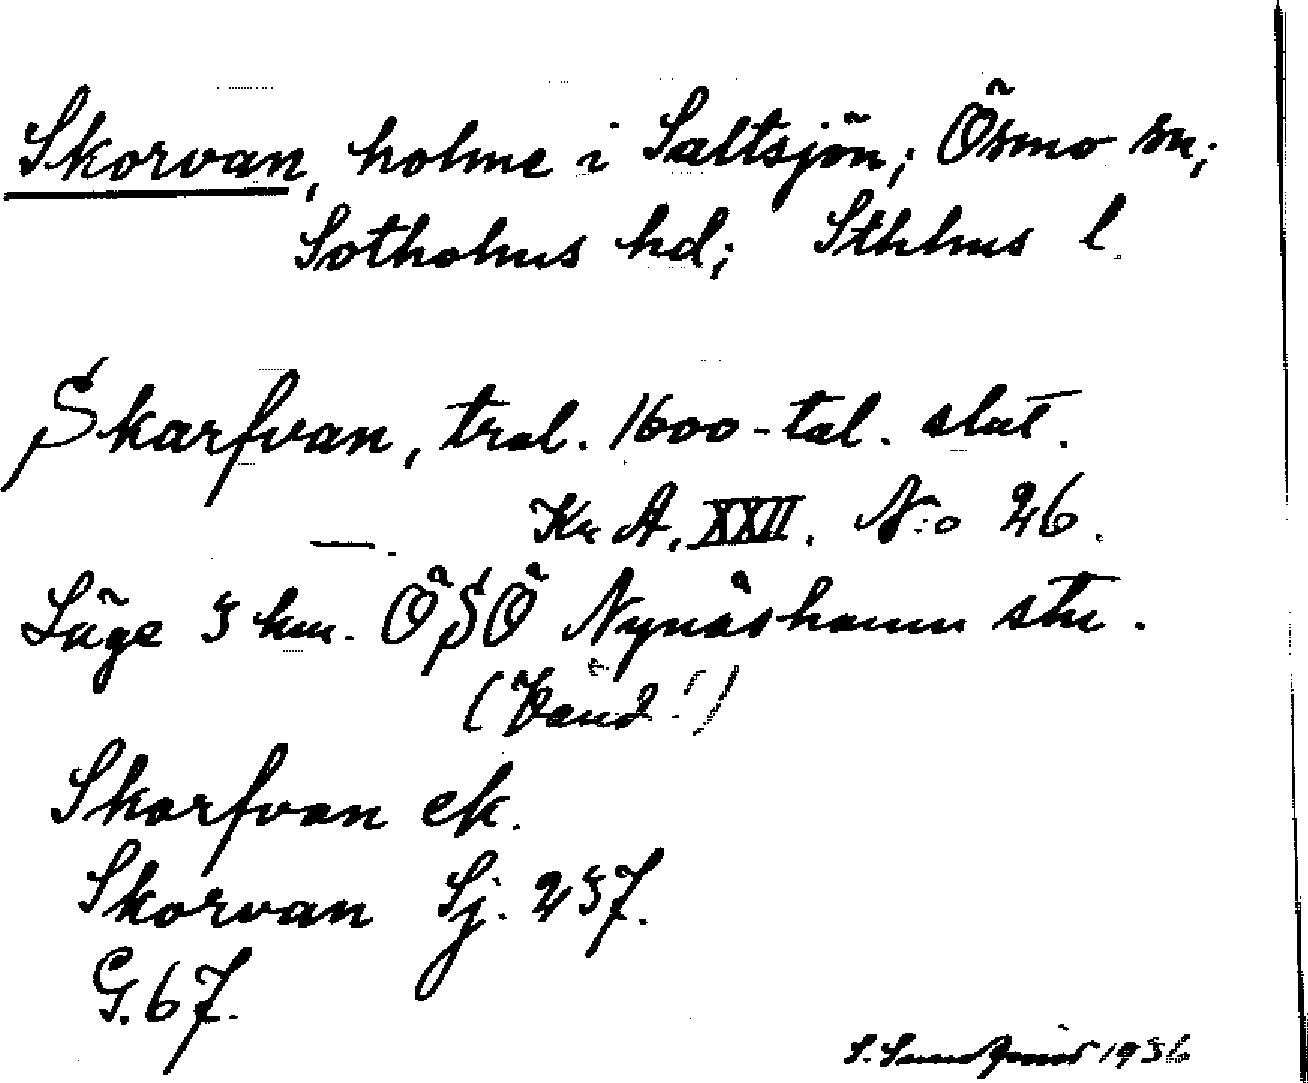 Skorvan, holme i Saltsjön; Ösmo sn;
Sotholms hd; Sthlms l.
Skarfvan, trol. 1600-tal. slut.
Kr A, XXII. N:o 26.
Läge 5 km. ÖSÖ Nynäshamn stn.
(Vänd!)
Skorfvan ek.
Skorvan Sj. 257.
G. 67.
1936